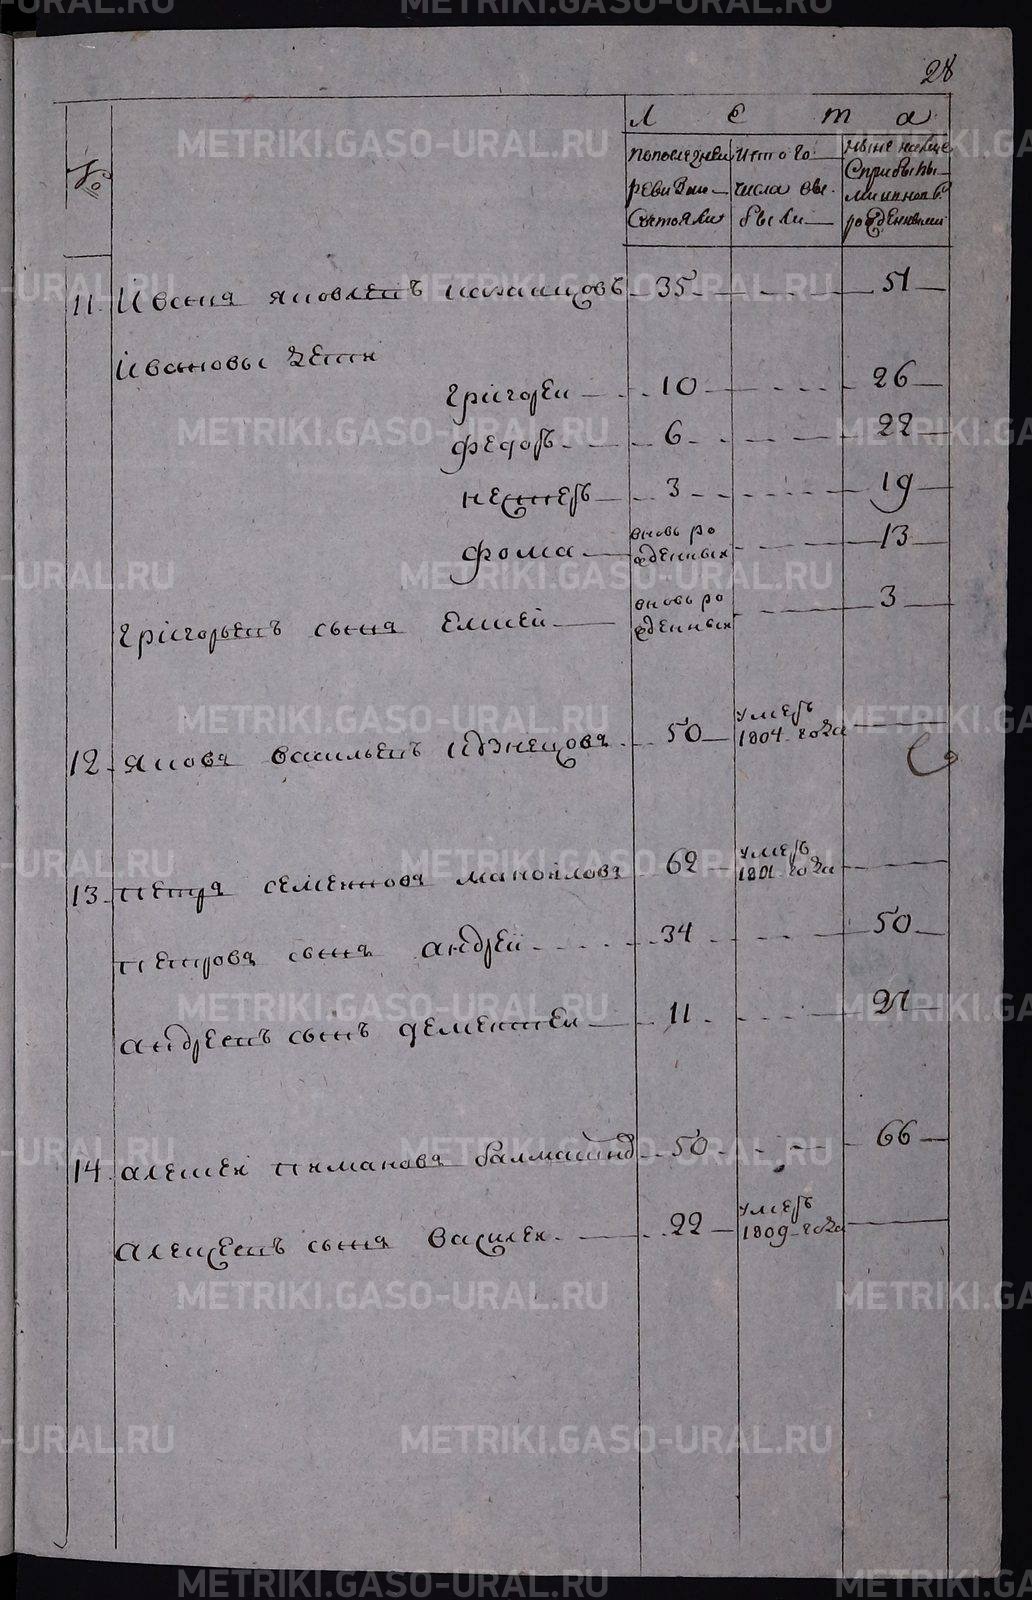 28
№
Л е т а
Попоследней
ревизии
Состояли
Ис того
числа овы
были
Ныне налице
С прибылы
ми ипноп
рожденными
11. Ивана яковлевъ казанцовъ 35 51
Ивановы дети
Григореи 10 26
федоръ 6 22
нестеръ 3 19
фома вновь ро
жденныхъ 13
Григорьевъ сынъ елисей вновь ро
жденныхъ 3
12. яковъ васильевъ кузнецовъ 50 умеръ
1804 года
13. петръ семеновъ маноиловъ 62 умеръ
1801 года
петровъ сынъ андреи 34 50
андреевъ сынъ дементеи 11 27
14. алексеи пиманова балмашевъ 50 66
Алексеевъ сынъ василеи 22 умеръ
1809 года
METRIKI.GASO-URAL.RU